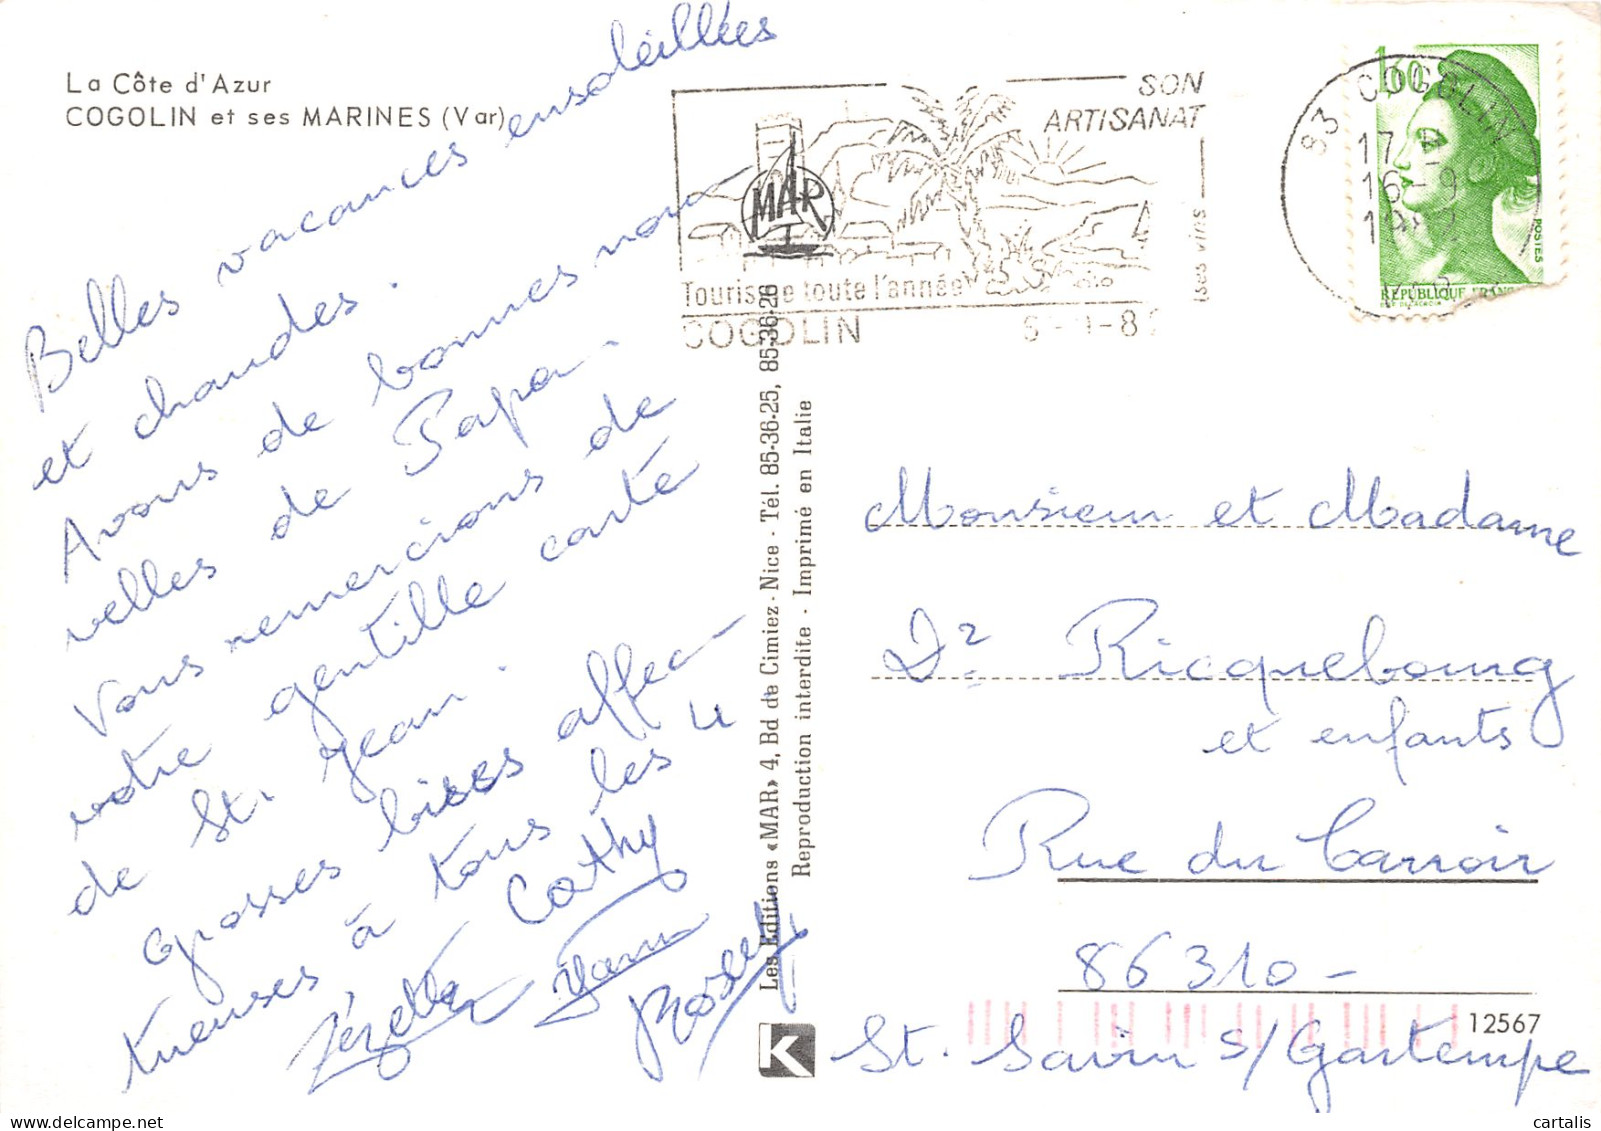 La Côte d'Azur
COGOLIN et ses MARINES (Var)
Belles vacances ensoléillées
et chaudes.
Avons de bonnes nou
velles de Papa.
Vous remercions de
votre gentille carte
de St. Jean.
Grosses bises affec-
tueuses à tous les 4
Cathy
Yann
SON
ARTISANAT
ses vins
MAR
Tourisme toute l'année
COGOLIN
83 COGOLIN
17 H
16-9
1.60
POSTES
RÉPUBLIQUE FRANÇ
Les Editions «MAR» 4, Bd de Cimiez - Nice - Tél. 85-36-25, 85-36-26
Reproduction interdite - Imprimé en Italie
Monsieur et Madame
Dr Ricquebourg
et enfants
Rue du Carroir
86310-
St. Savin s/Gartempe
12567
K